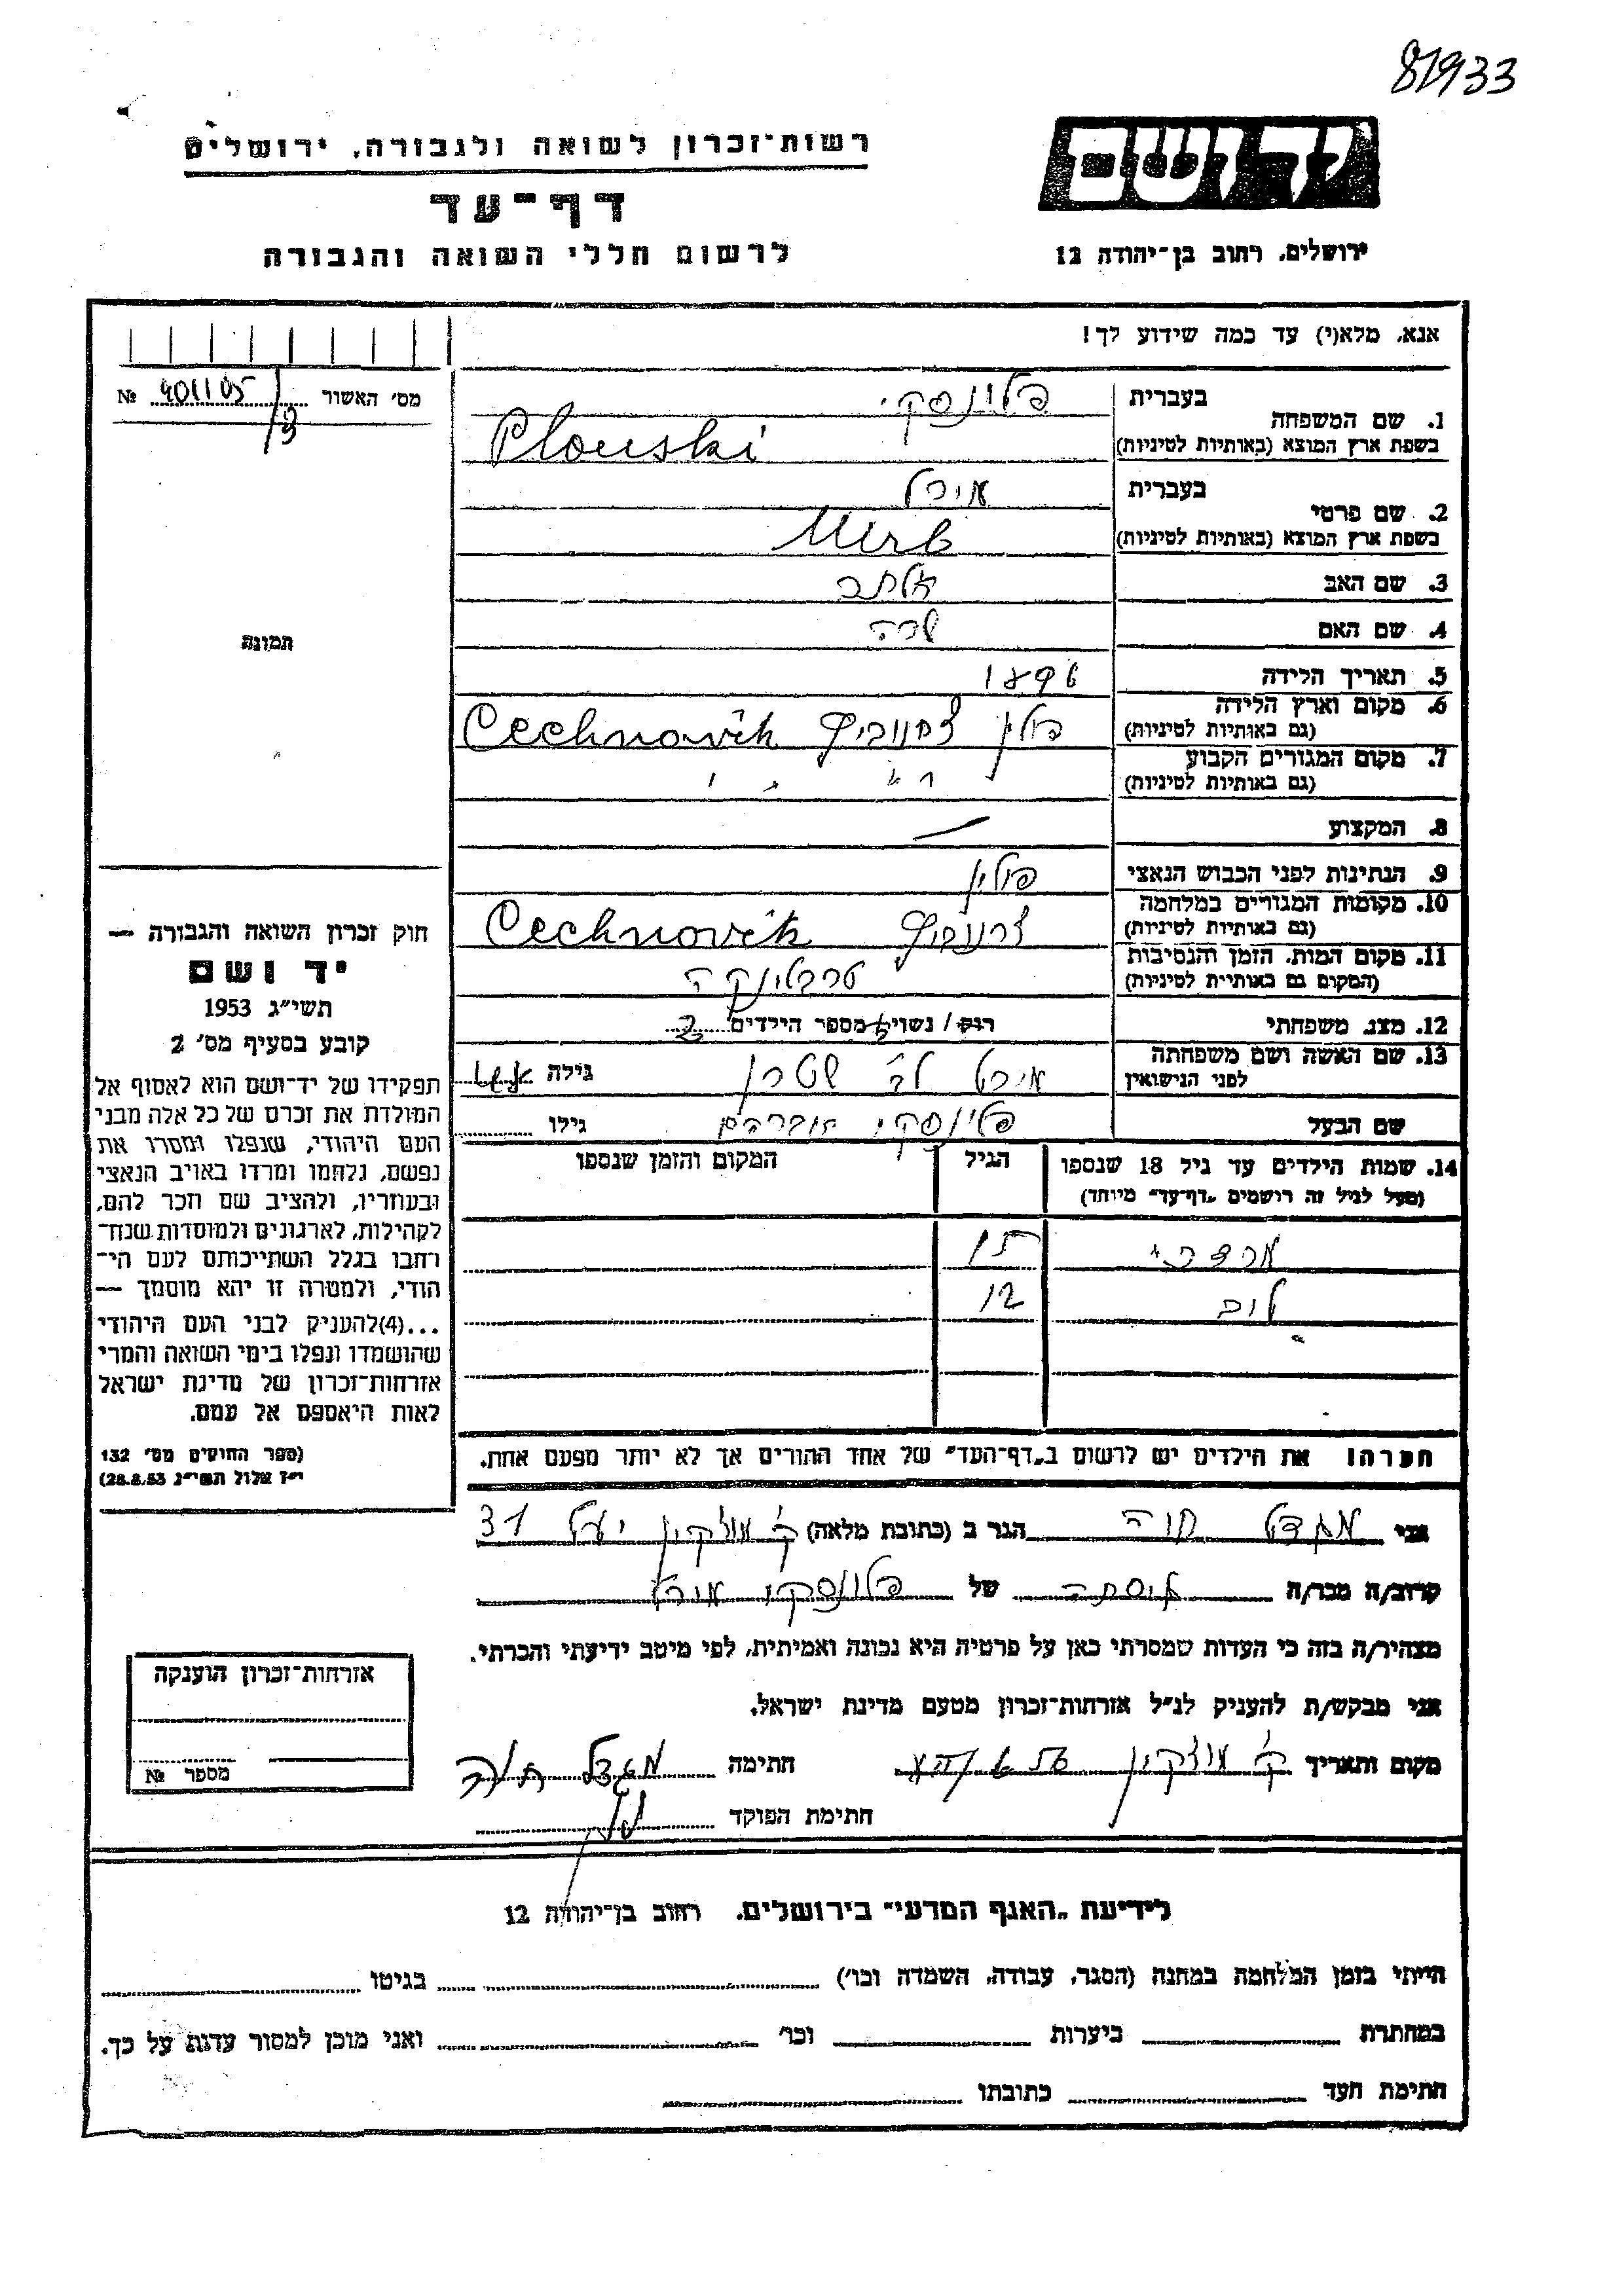 81933
רשות־זכרון לשואה ולגבורה, ירושלים
דף־עד
לרשום חללי השואה והגבורה
יד ושם
ירושלים, רחוב בן־יהודה 12
אנא, מלא(י) עד כמה שידוע לך!
מס׳ האשור № 401105/
1. שם המשפחה
בעברית פלונסקי
בשפת ארץ המוצא (באותיות לטיניות) Plouski
2. שם פרטי
בעברית
בשפת ארץ המוצא (באותיות לטיניות)
3. שם האב
4. שם האם שרה
5. תאריך הלידה
6. מקום וארץ הלידה
(גם באותיות לטיניות) פולין Cechnovik
7. מקום המגורים הקבוע
(גם באותיות לטיניות)
8. המקצוע —
9. הנתינות לפני הכבוש הנאצי פולין
10. מקומות המגורים במלחמה
(גם באותיות לטיניות) Cechnovik
11. מקום המות, הזמן והנסיבות
(המקום גם באותיית לטיניות) טרבלינקה
12. מצב משפחתי רווק / נשוי מספר הילדים 2
13. שם האשה ושם משפחתה
לפני הנישואין שטרן גילה
שם הבעל פלונסקי אברהם גילו
14. שמות הילדים עד גיל 18 שנספו
(מעל לגיל זה רושמים „דף־עד״ מיוחד)
הגיל
המקום והזמן שנספו
מרדכי
טוב 12
הערה! את הילדים יש לרשום ב„דף־העד״ של אחד ההורים אך לא יותר מפעם אחת.
אני מגדל חוה הגר ב (כתובת מלאה) ק׳ מוצקין יעל 31
קרוב/ה מכר/ה של פלונסקי
מצהיר/ה בזה כי העדות שמסרתי כאן על פרטיה היא נכונה ואמיתית, לפי מיטב ידיעתי והכרתי.
אני מבקש/ת להעניק לנ״ל אזרחות־זכרון מטעם מדינת ישראל.
מקום ותאריך ק׳ מוצקין חתימה מגדל חוה
חתימת הפוקד
תמונה
חוק זכרון השואה והגבורה —
יד ושם
תשי״ג 1953
קובע בסעיף מס׳ 2
תפקידו של יד־ושם הוא לאסוף אל
המולדת את זכרם של כל אלה מבני
העם היהודי, שנפלו ומסרו את
נפשם, נלחמו ומרדו באויב הנאצי
ובעוזריו, ולהציב שם וזכר להם,
לקהילות, לארגונים ולמוסדות שנח־
רחבו בגלל השתייכותם לעם הי־
הודי, ולמטרה זו יהא מוסמך —
...(4)להעניק לבני העם היהודי
שהושמדו ונפלו בימי השואה והמרי
אזרחות־זכרון של מדינת ישראל
לאות היאספם אל עמם.
(ספר החוקים מס׳ 132
י״ז אלול תשי״ג 28.8.53)
אזרחות־זכרון הוענקה
מספר №
לידיעת „האגף המדעי״ בירושלים, רחוב בן־יהודה 12
הייתי בזמן המלחמה במחנה (הסגר, עבודה, השמדה וכו׳) בגיטו
במחתרת ביערות וכו׳ ואני מוכן למסור עדות על כך.
חתימת העד כתובתו